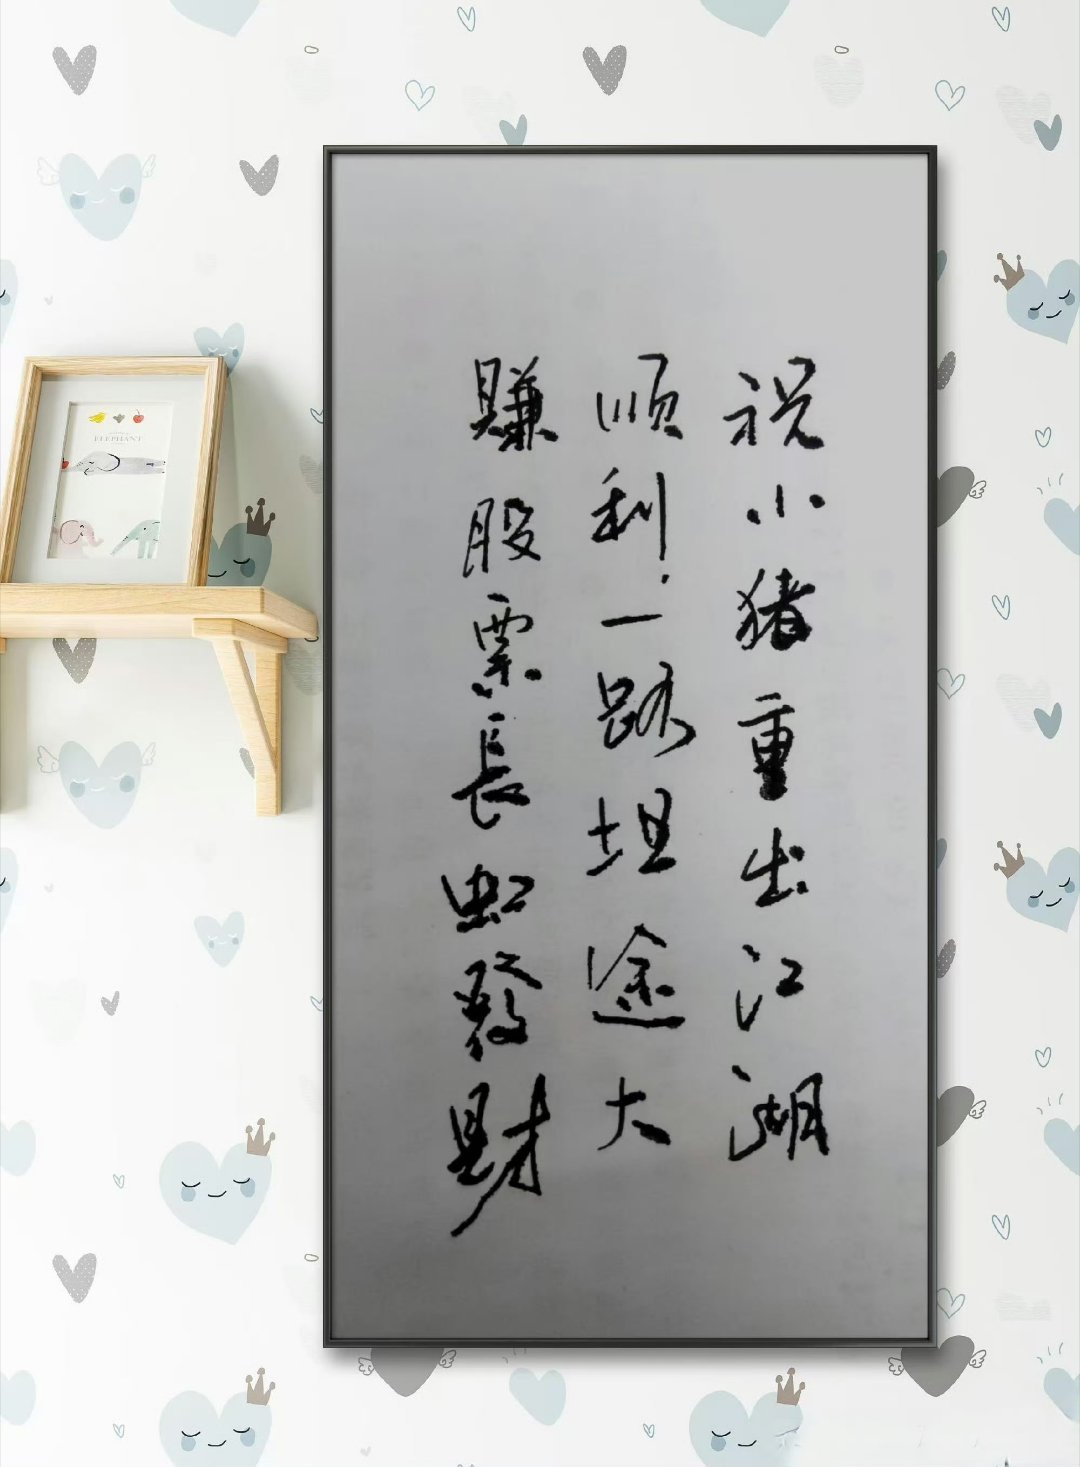 祝小猪重出江湖
順利一路坦途大
賺股票長虹發财
ELEPHANT